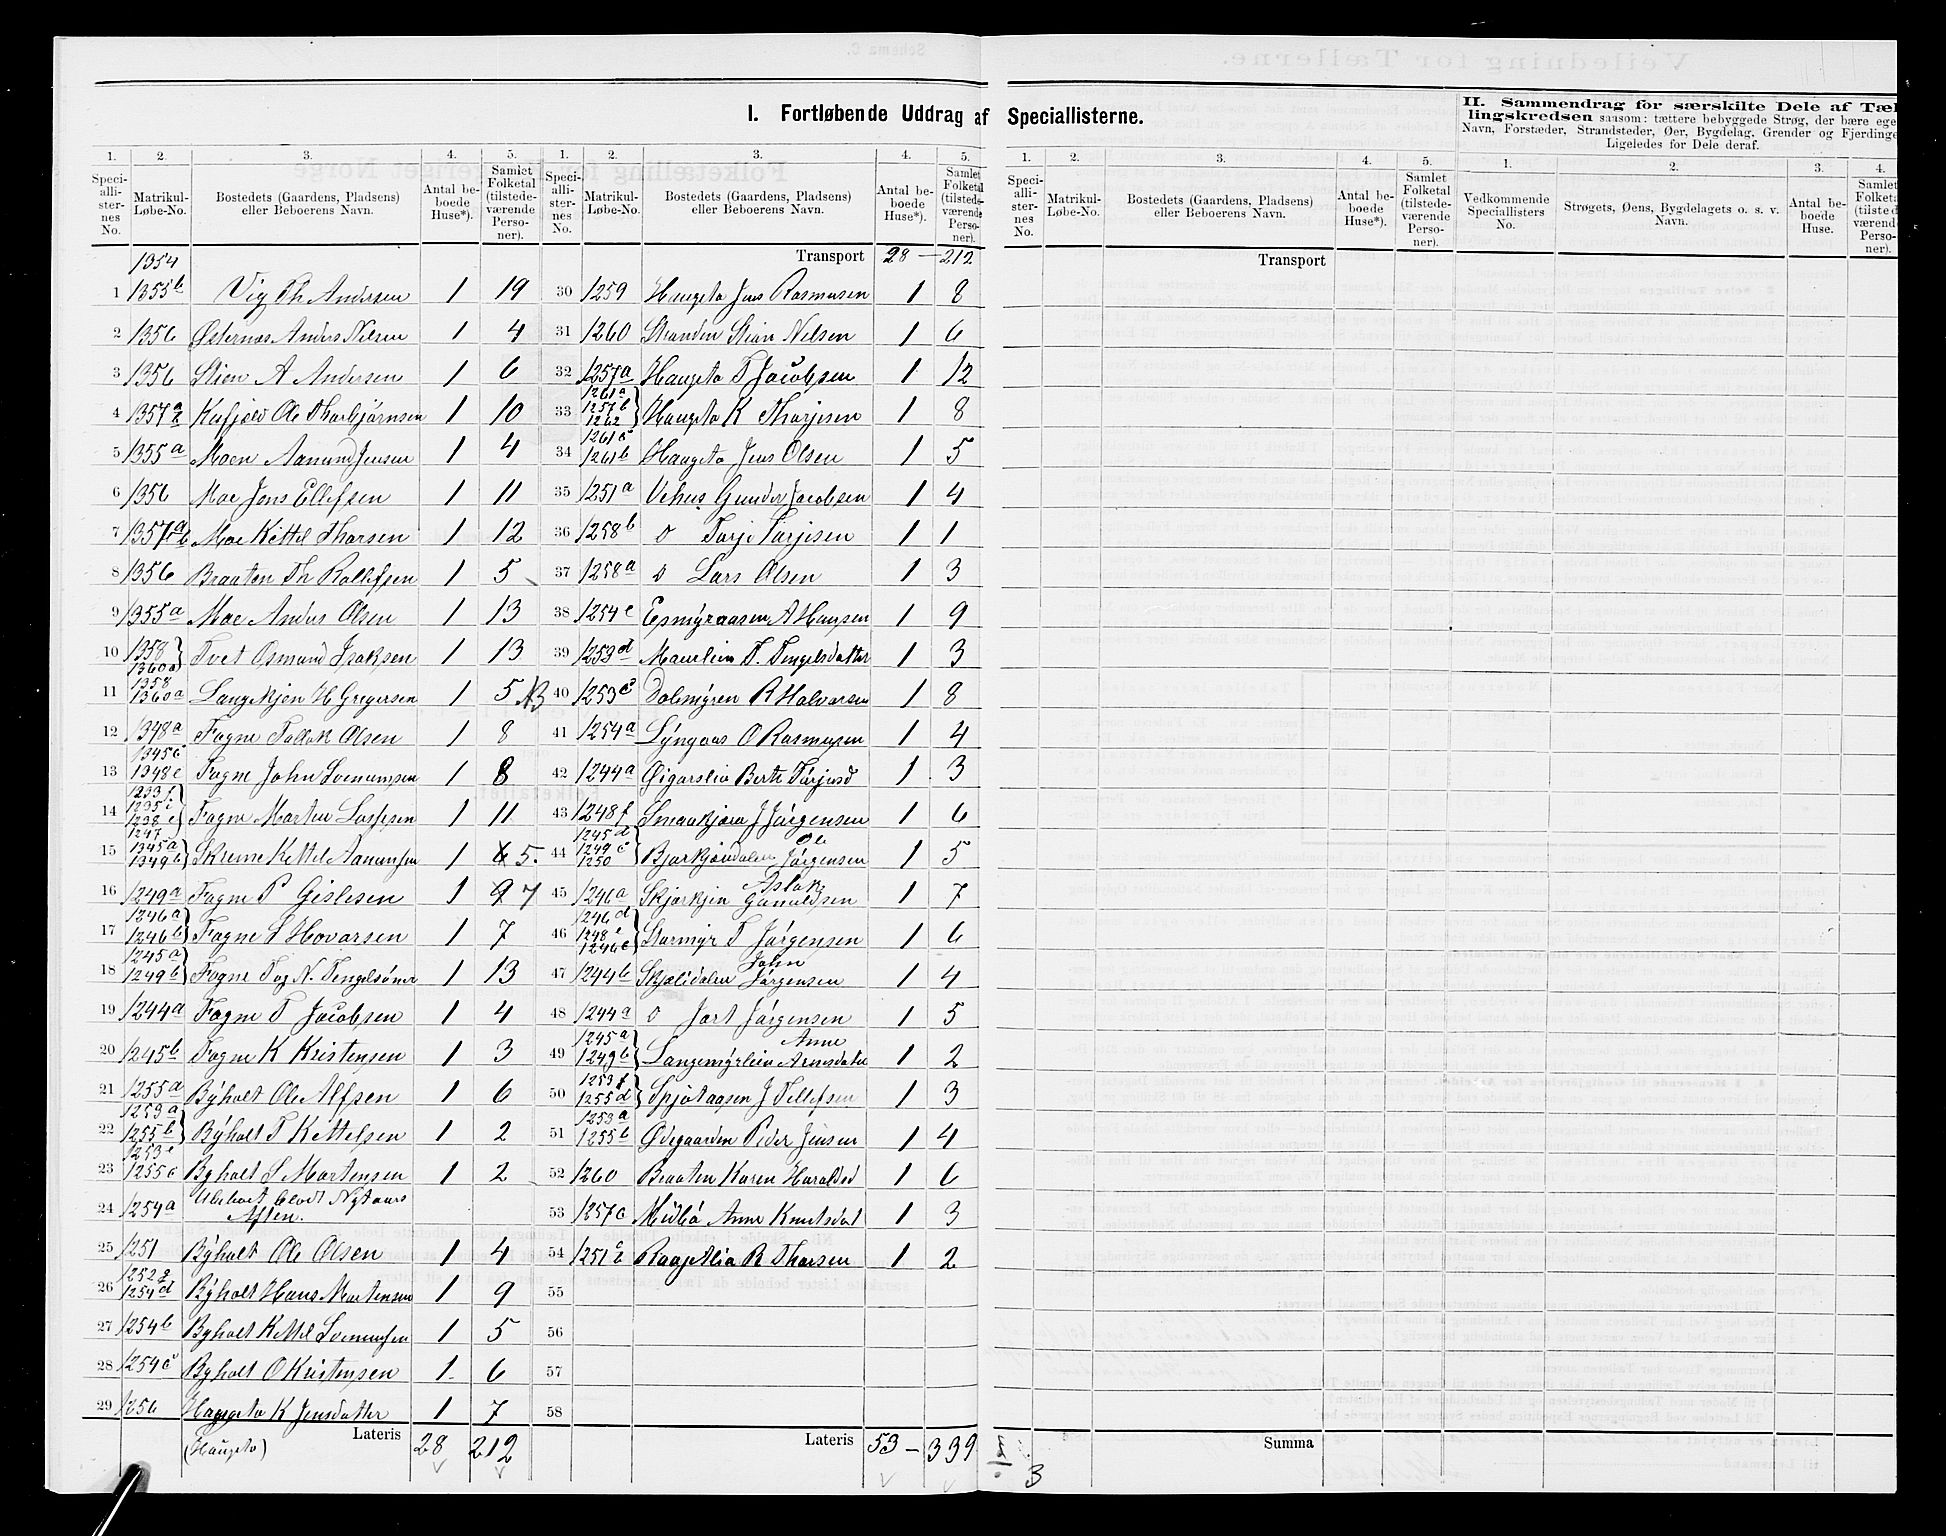 I. Fortløbende Uddrag af Speciallisterne.
II. Sammendrag for særskilte Dele af Tæl-
lingskredsen saasom: tættere bebyggede Strøg, der bære eget
Navn, Forstæder, Strandsteder, Øer, Bygdelag, Grender og Fjerdinger
Ligeledes for Dele deraf.
1. 2. 3. 4. 5. 1. 2. 3. 4. 5. 1. 2. 3. 4. 5. 1. 2. 3. 4.
Speci-allister-nes No. Matrikul-Løbe-No. Bostedets (Gaardens, Pladsens) eller Beboerens Navn. Antal be-boede Huse*). Samlet Folketal (tilstede-værende Perso-ner).
Speci-alli-ster-nes No. Matrikul-Løbe-No. Bostedets (Gaardens, Pladsens) eller Beboerens Navn. Antal be-boede Huse*). Samlet Folketal (tilstede-værende Perso-ner).
Speci-alli-ster-nes No. Matrikul-Løbe-No. Bostedets (Gaardens, Pladsens) eller Beboerens Navn. Antal be-boede Huse*). Samlet Folketal (tilstede-værende Perso-ner).
Vedkommende Speciallisters No. Strøgets, Øens, Bygdelagets o. s. v. Navn. Antal be-boede Huse. Samlet Folketal (tilstede-værende Perso-ner).
1354
1 1355b Vig Th Andersen 1 19
2 1356 Østernæs Anders Nilsen 1 4
3 1356 Stien A Andersen 1 6
4 1357a Ole Thorbjørnsen 1 10
5 1355a Moen Aanund Jensen 1 4
6 1356 Moe Jens Ellefsen 1 11
7 1357ab Moe Kittel Tharsen 1 12
8 1356 Braaten Th Rollefsen 1 5
9 1355a Moe Anders Olsen 1 13
10 1358 1360a Tvet Osmund Isaksen 1 13
11 1358 1360a Langekjen H Gregersen 1 5
12 1348a Fogne Tallak Olsen 1 8
13 1345c 1348c Fogne John 1 8
14 1247 Fogne Marten 1 11
15 1345a 1349b Skreme Kettel Aanunsen 1 6 5.
16 1249a Fogne P Gislesen 1 9 7
17 1246a 1246b Fogne S Hovarsen 1 7
18 1245a 1249b Fogne N. 1 13
19 1244a Fogne T Jacobsen 1 4
20 1245b Fogne K Kristensen 1 3
21 1255a Byholt Ole Alfsen 1 6
22 1253a 1255b Byholt T Kettelsen 1 2
23 1253c 1255c Byholt S Martensen 1 2
24 1254a Nytaars Aften.
25 1251 Byholt Ole Olsen 1 4
26 1252 1254d Byholt Hans Martensen 1 9
27 1254b Byholt Kettel 1 5
28 1254c Byholt O Kristensen 1 6
29 1256 Haugeto K Jensdatter 1 7
(Haugeto) Lateris 28 212
Transport 28 — 212
30 1259 Haugeto Jens Rasmusen 1 8
31 1260 Stranden Stian Nilsen 1 6
32 1257a Haugeto T Jacobsen 1 12
33 1261a 1257b 1262 Haugeto K Tharjesen 1 8
34 1261c 1261b Haugeto Jens Olsen 1 5
35 1251a Vehus Gunder Jacobsen 1 4
36 1258b o Tarje Tarjesen 1 1
37 1258a o Lars Olsen 1 3
38 1254c A Hansen 1 9
39 1253d T. Tengelsdatter 1 3
40 1253c Dalemyren R Halvorsen 1 8
41 1254a Lyngaas O Rasmusen 1 4
42 1244a Berte 1 3
43 1248f J Jørgensen 1 6
44 1245d 1249c 1250 Bjorkjendalen Ole Jørgensen 1 5
45 1246a Aslak 1 7
46 1246d Starmyr T Jørgensen 1 6
47 1244b John Jørgensen 1 4
48 1244a o Jort Jørgensen 1 5
49 1245a 1249b Langemyrlien Anne Arnesdatter 1 2
50 1253f 1255d Spjotaasen J Tellefsen 1 3
51 1253a 1255b Ødegaarden Peder Jensen 1 4
52 1260 Braaten Karen Haraldsd 1 6
53 1257c Midbø Anne Knutsdat 1 3
54 1251 R Tharsen 1 2
55
56
57
58
Lateris 53 — 339
3
Transport
Summa